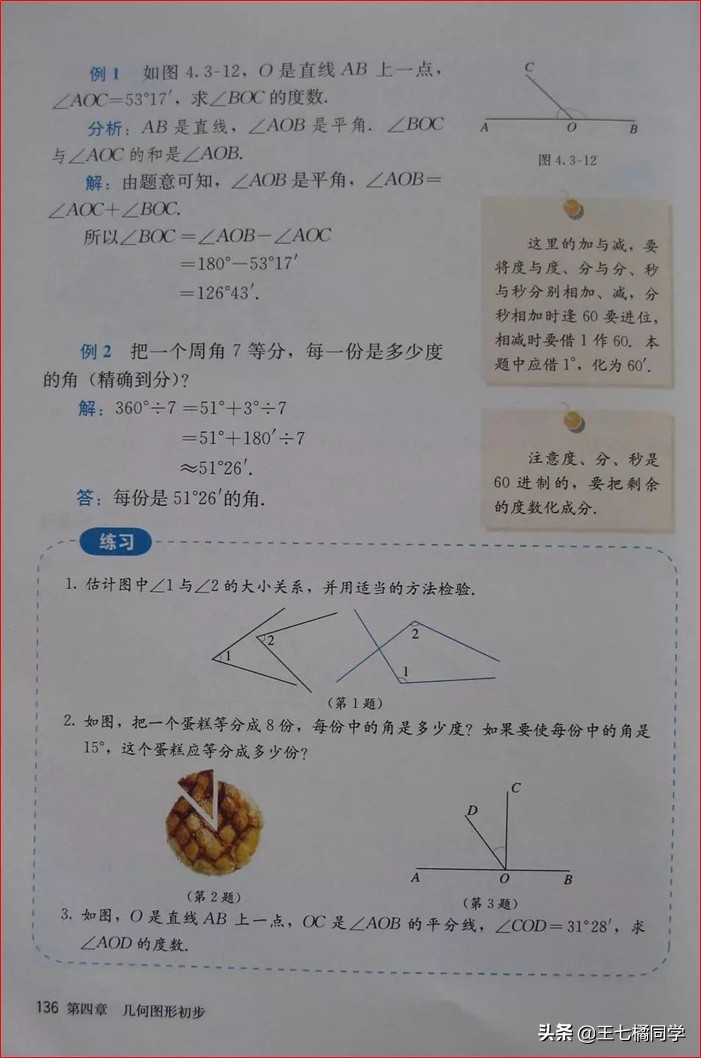 例 1　如图 4.3-12，O 是直线 AB 上一点，
∠AOC=53°17′，求∠BOC 的度数.
分析：AB 是直线，∠AOB 是平角. ∠BOC
与∠AOC 的和是∠AOB.
解：由题意可知，∠AOB 是平角，∠AOB=
∠AOC+∠BOC.
所以∠BOC =∠AOB-∠AOC
=180°-53°17′
=126°43′.
C
A
O
B
图 4.3-12
这里的加与减，要
将度与度、分与分、秒
与秒分别相加、减，分
秒相加时逢 60 要进位，
相减时要借 1 作 60. 本
题中应借 1°，化为 60′.
例 2　把一个周角 7 等分，每一份是多少度
的角（精确到分）？
解：360°÷7 =51°+3°÷7
=51°+180′÷7
≈51°26′.
答：每份是 51°26′的角.
注意度、分、秒是
60 进制的，要把剩余
的度数化成分.
练习
1. 估计图中∠1 与∠2 的大小关系，并用适当的方法检验.
1
2
1
2
（第 1 题）
2. 如图，把一个蛋糕等分成 8 份，每份中的角是多少度？如果要使每份中的角是
15°，这个蛋糕应等分成多少份？
（第 2 题）
C
D
A
O
B
（第 3 题）
3. 如图，O 是直线 AB 上一点，OC 是∠AOB 的平分线，∠COD=31°28′，求
∠AOD 的度数.
136 第四章　几何图形初步
头条 @王七橘同学